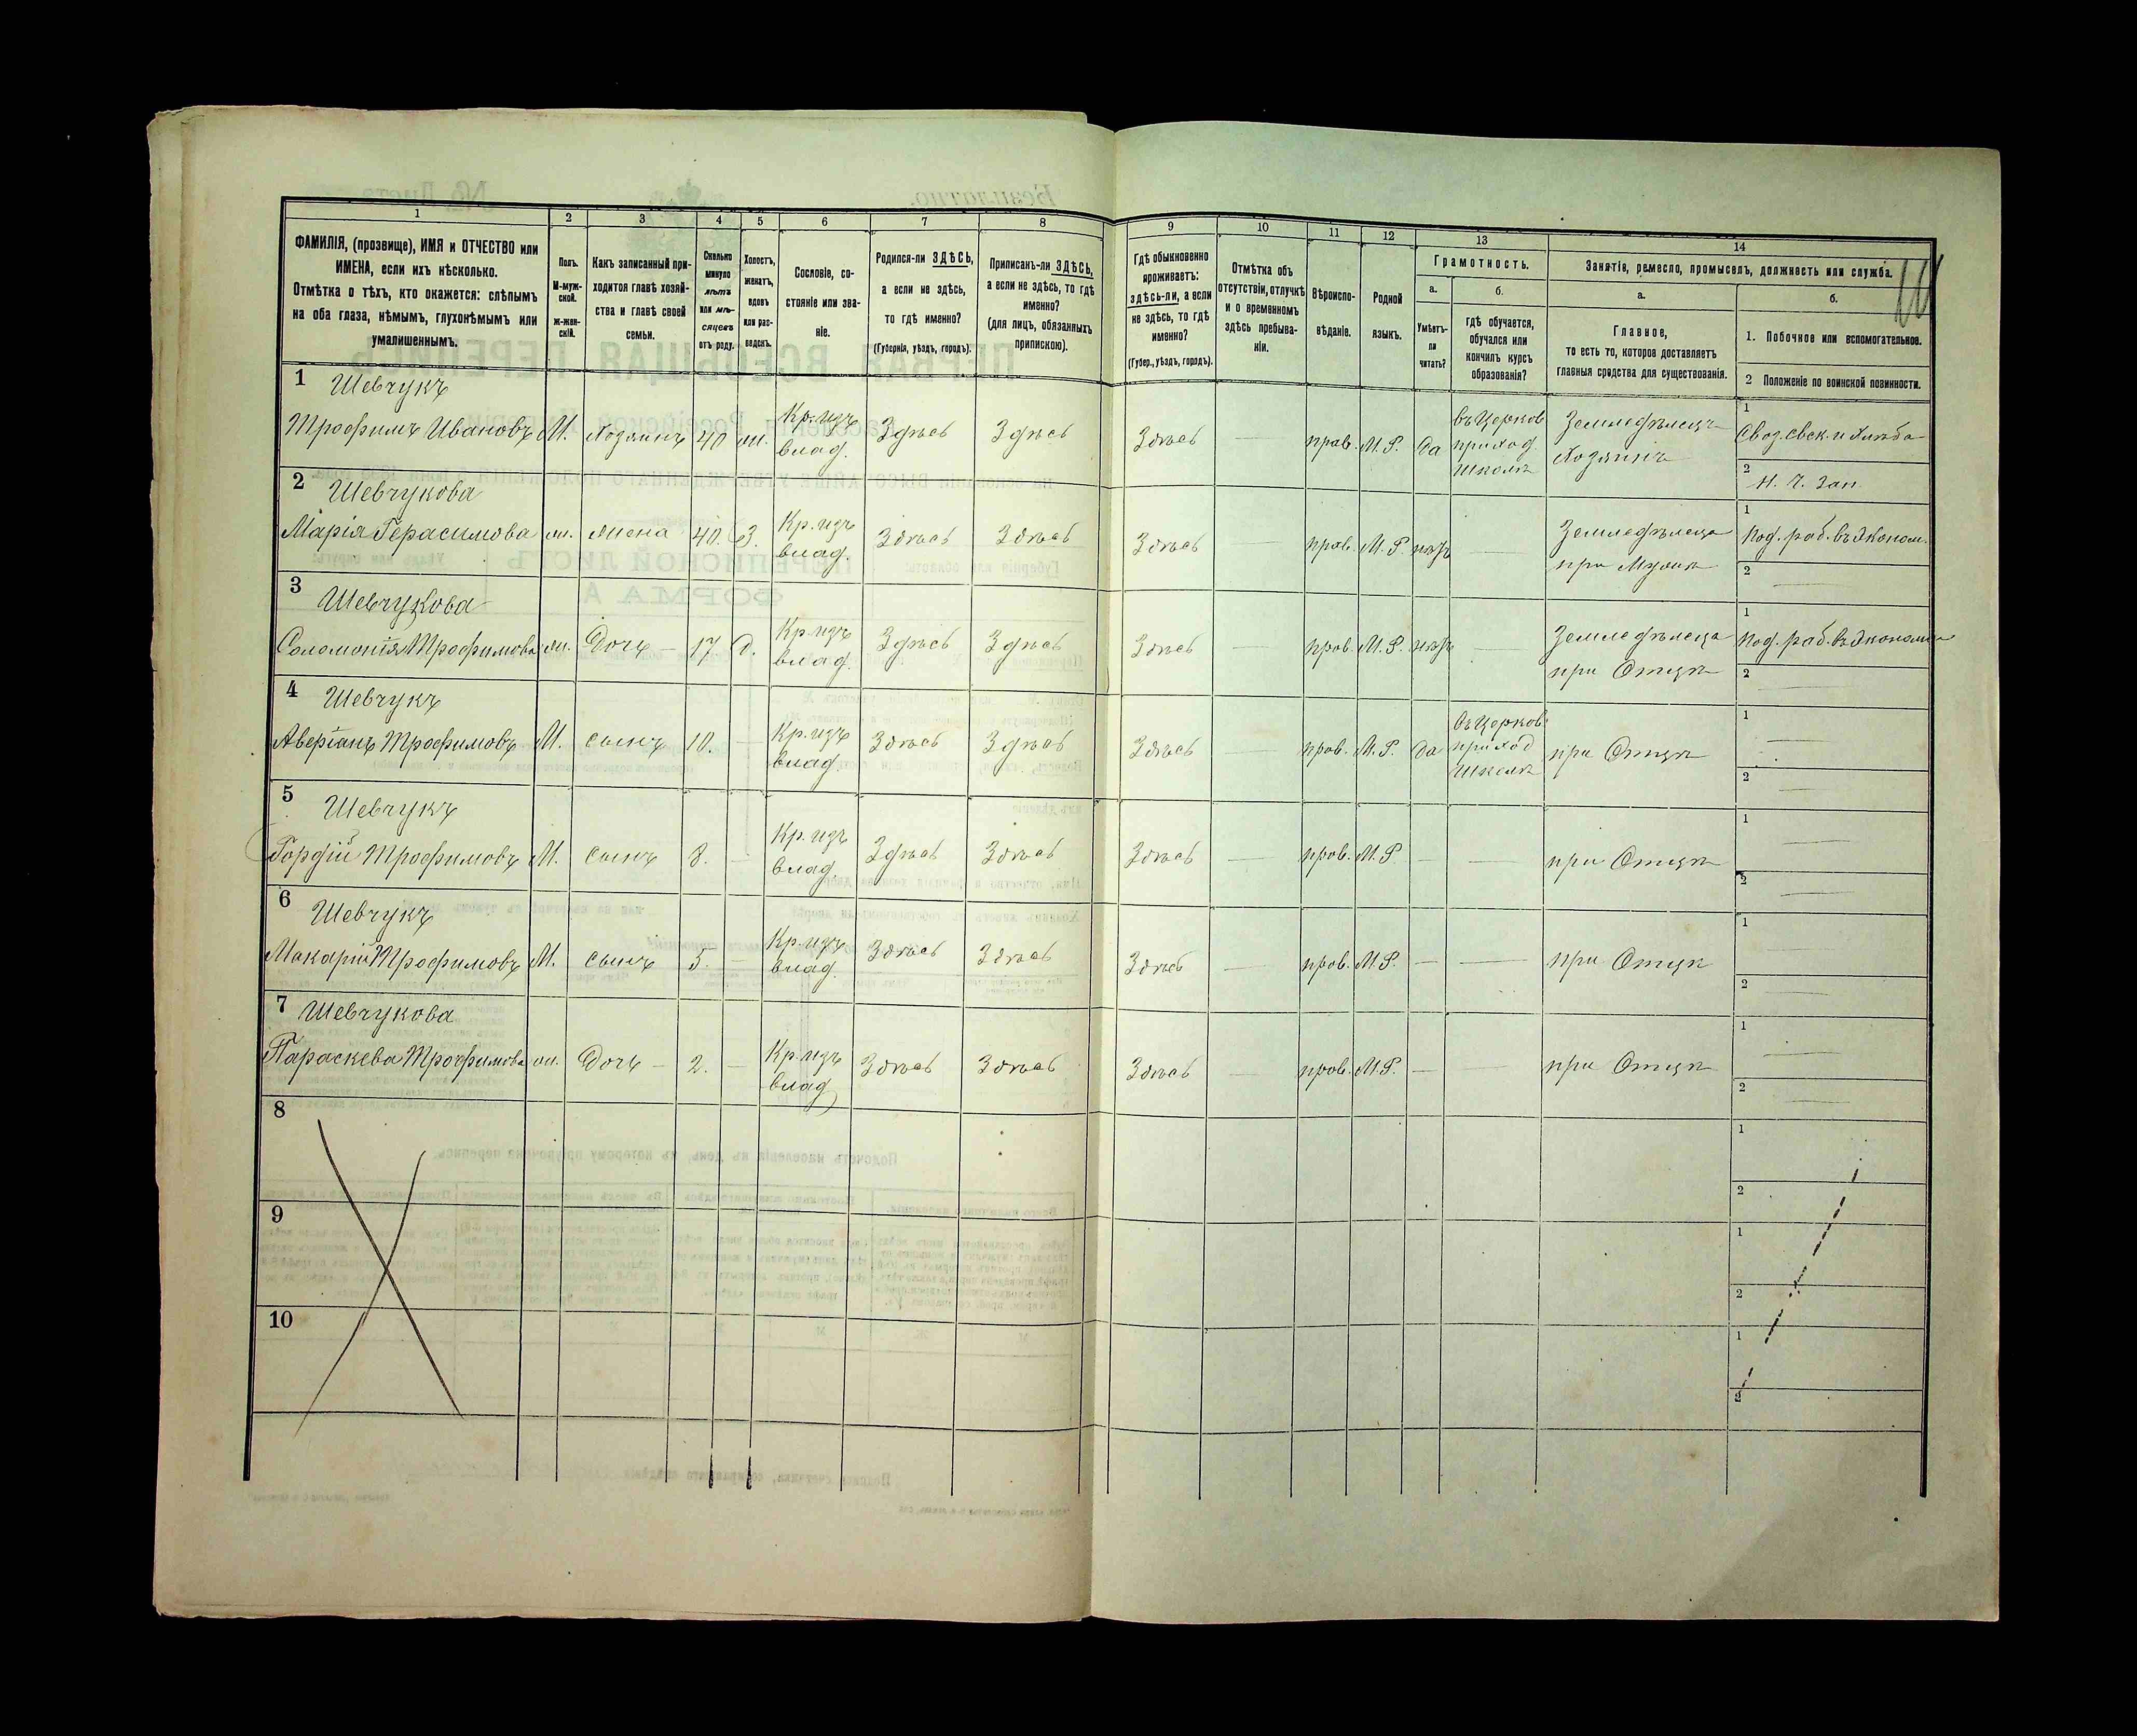 1 2 3 4 5 6 7 8 9 10 11 12 13 14
ФАМИЛІЯ, (прозвище), ИМЯ и ОТЧЕСТВО или
ИМЕНА, если ихъ нѣсколько.
Отмѣтка о тѣхъ, кто окажется: слѣпымъ
на оба глаза, нѣмымъ, глухонѣмымъ или
умалишеннымъ.
Полъ.
М-муж-
ской.
ж-жен-
скій.
Какъ записанный при-
ходится главѣ хозяй-
ства и главѣ своей
семьи.
Сколько
минуло
лѣтъ
или мѣ-
сяцевъ
отъ роду.
Холостъ,
женатъ,
вдовъ
или раз-
веденъ.
Сословіе, со-
стояніе или зва-
ніе.
Родился-ли ЗДѢСЬ,
а если не здѣсь,
то гдѣ именно?
(Губернія, уѣздъ, городъ).
Приписанъ-ли ЗДѢСЬ,
а если не здѣсь, то гдѣ
именно?
(для лицъ, обязанныхъ
припискою).
Гдѣ обыкновенно
проживаетъ:
здѣсь-ли, а если
не здѣсь, то гдѣ
именно?
(Губер., уѣздъ, городъ).
Отмѣтка объ
отсутствіи, отлучкѣ
и о временномъ
здѣсь пребыва-
ніи.
Вѣроиспо-
вѣданіе.
Родной
языкъ.
Грамотность.
а.
Умѣетъ-
ли
читать?
б.
гдѣ обучается,
обучался или
кончилъ курсъ
образованія?
Занятія, ремесло, промыселъ, должность или служба.
а.
Главное,
то есть то, которое доставляетъ
главныя средства для существованія.
б.
1. Побочное или вспомогательное.
2 Положеніе по воинской повинности.
1 Шевчукъ
Трофимъ Ивановъ М. Хозяинъ 40 ж. Кр. изъ влад. Здѣсь Здѣсь Здѣсь — прав. М.Р. да въ Церков. приход школѣ Земледѣлецъ Хозяинъ
1
2 Н. Ч. Зап.
2 Шевчукова
Марія Герасимова ж. жена 40. З. Кр. изъ влад. Здѣсь Здѣсь Здѣсь — прав. М.Р. нѣтъ — Земледѣлица при Мужѣ
1 Под. раб. въ Эконом.
2 —
3 Шевчукова
Соломонія Трофимова ж. Дочь — 17 Д. Кр. изъ влад. Здѣсь Здѣсь Здѣсь — прав. М.Р. нѣтъ — Земледѣлица при Отцѣ
1 Под. раб. въ Экономіи
2 —
4 Шевчукъ
Аверіанъ Трофимовъ М. сынъ 10. — Кр. изъ влад. Здѣсь Здѣсь Здѣсь — прав. М.Р. да въ Церков. приход школѣ при Отцѣ
1 —
2 —
5 Шевчукъ
Гордій Трофимовъ М. сынъ 8. — Кр. изъ влад. Здѣсь Здѣсь Здѣсь — прав. М.Р. — — при Отцѣ
1 —
2 —
6 Шевчукъ
Макарій Трофимовъ М. сынъ 5. — Кр. изъ влад. Здѣсь Здѣсь Здѣсь — прав. М.Р. — — при Отцѣ
1 —
2 —
7 Шевчукова
Параскева Трофимова ж. Дочь — 2. — Кр. изъ влад. Здѣсь Здѣсь Здѣсь — прав. М.Р. — — при Отцѣ
1 —
2 —
8
1
2
9
1
2
10
1
2